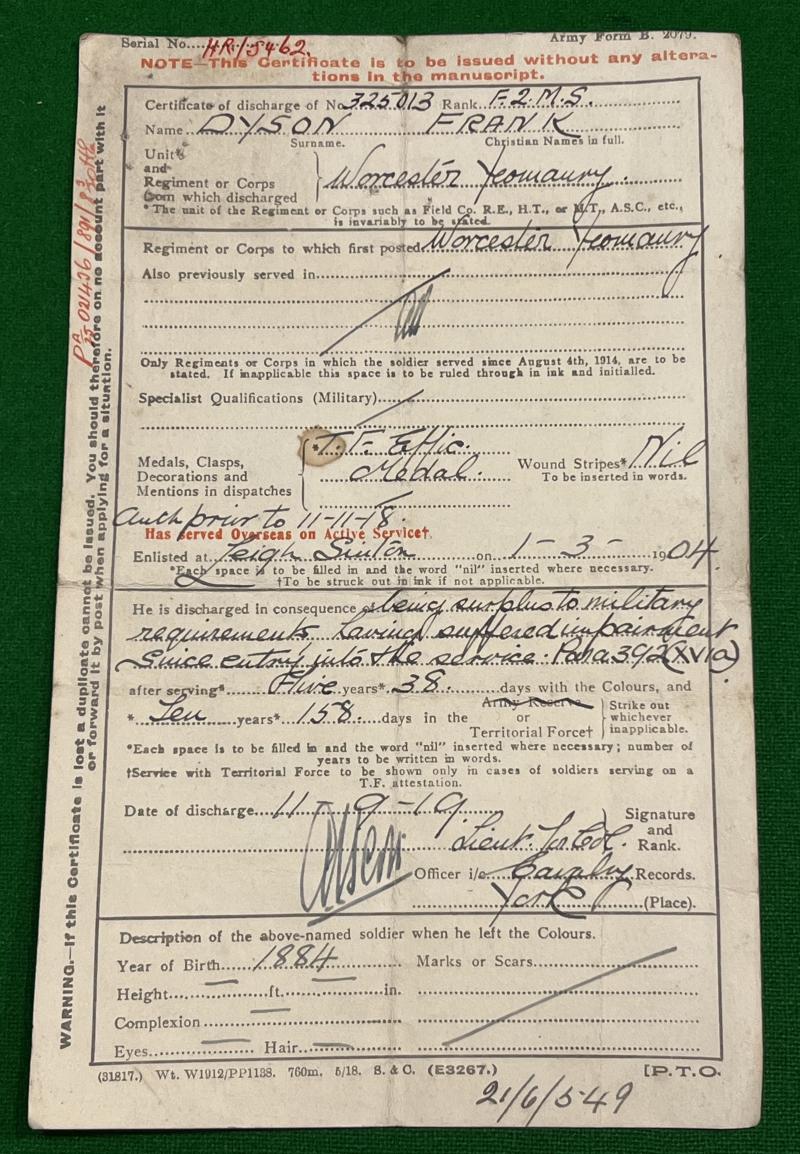 Serial No. HR/15462. Army Form B. 2079.
NOTE—This Certificate is to be issued without any altera-
tions in the manuscript.
Certificate of discharge of No. 325013 Rank F.Q.M.S.
Name DYSON FRANK
Surname. Christian Names in full.
Unit*
and
Regiment or Corps
from which discharged
Worcester Yeomanry.
*The unit of the Regiment or Corps such as Field Co. R.E., H.T., or M.T., A.S.C., etc.,
is invariably to be stated.
Regiment or Corps to which first posted Worcester Yeomanry
Also previously served in
Only Regiments or Corps in which the soldier served since August 4th, 1914, are to be
stated. If inapplicable this space is to be ruled through in ink and initialled.
Specialist Qualifications (Military)
Medals, Clasps,
Decorations and
Mentions in dispatches
*T.F. Effic.
Medal.
Wound Stripes* Nil
To be inserted in words.
Auth prior to 11-11-18.
Has served Overseas on Active Service†.
Enlisted at Leigh Sinton on 1-3- 1904.
*Each space is to be filled in and the word "nil" inserted where necessary.
†To be struck out in ink if not applicable.
He is discharged in consequence of being surplus to military
requirements having suffered impairment
since entry into the service. Para 392 (XVIa)
after serving* Five years* 38 days with the Colours, and
* Ten years* 158 days in the Army Reserve
or
Territorial Force†
Strike out
whichever
inapplicable.
*Each space is to be filled in and the word "nil" inserted where necessary; number of
years to be written in words.
†Service with Territorial Force to be shown only in cases of soldiers serving on a
T.F. attestation.
Date of discharge 11-9-19
Lieut. for Col.
Signature
and
Rank.
Officer i/c Cavalry Records.
York (Place).
Description of the above-named soldier when he left the Colours.
Year of Birth 1884 Marks or Scars
Height ft. in.
Complexion
Eyes Hair
(31817.) Wt. W1912/PP1138. 760m. 5/18. S. & C. (E3267.) [P.T.O.
21/6/549
WARNING.—If this Certificate is lost a duplicate cannot be issued. You should therefore on no account part with it
or forward it by post when applying for a situation.